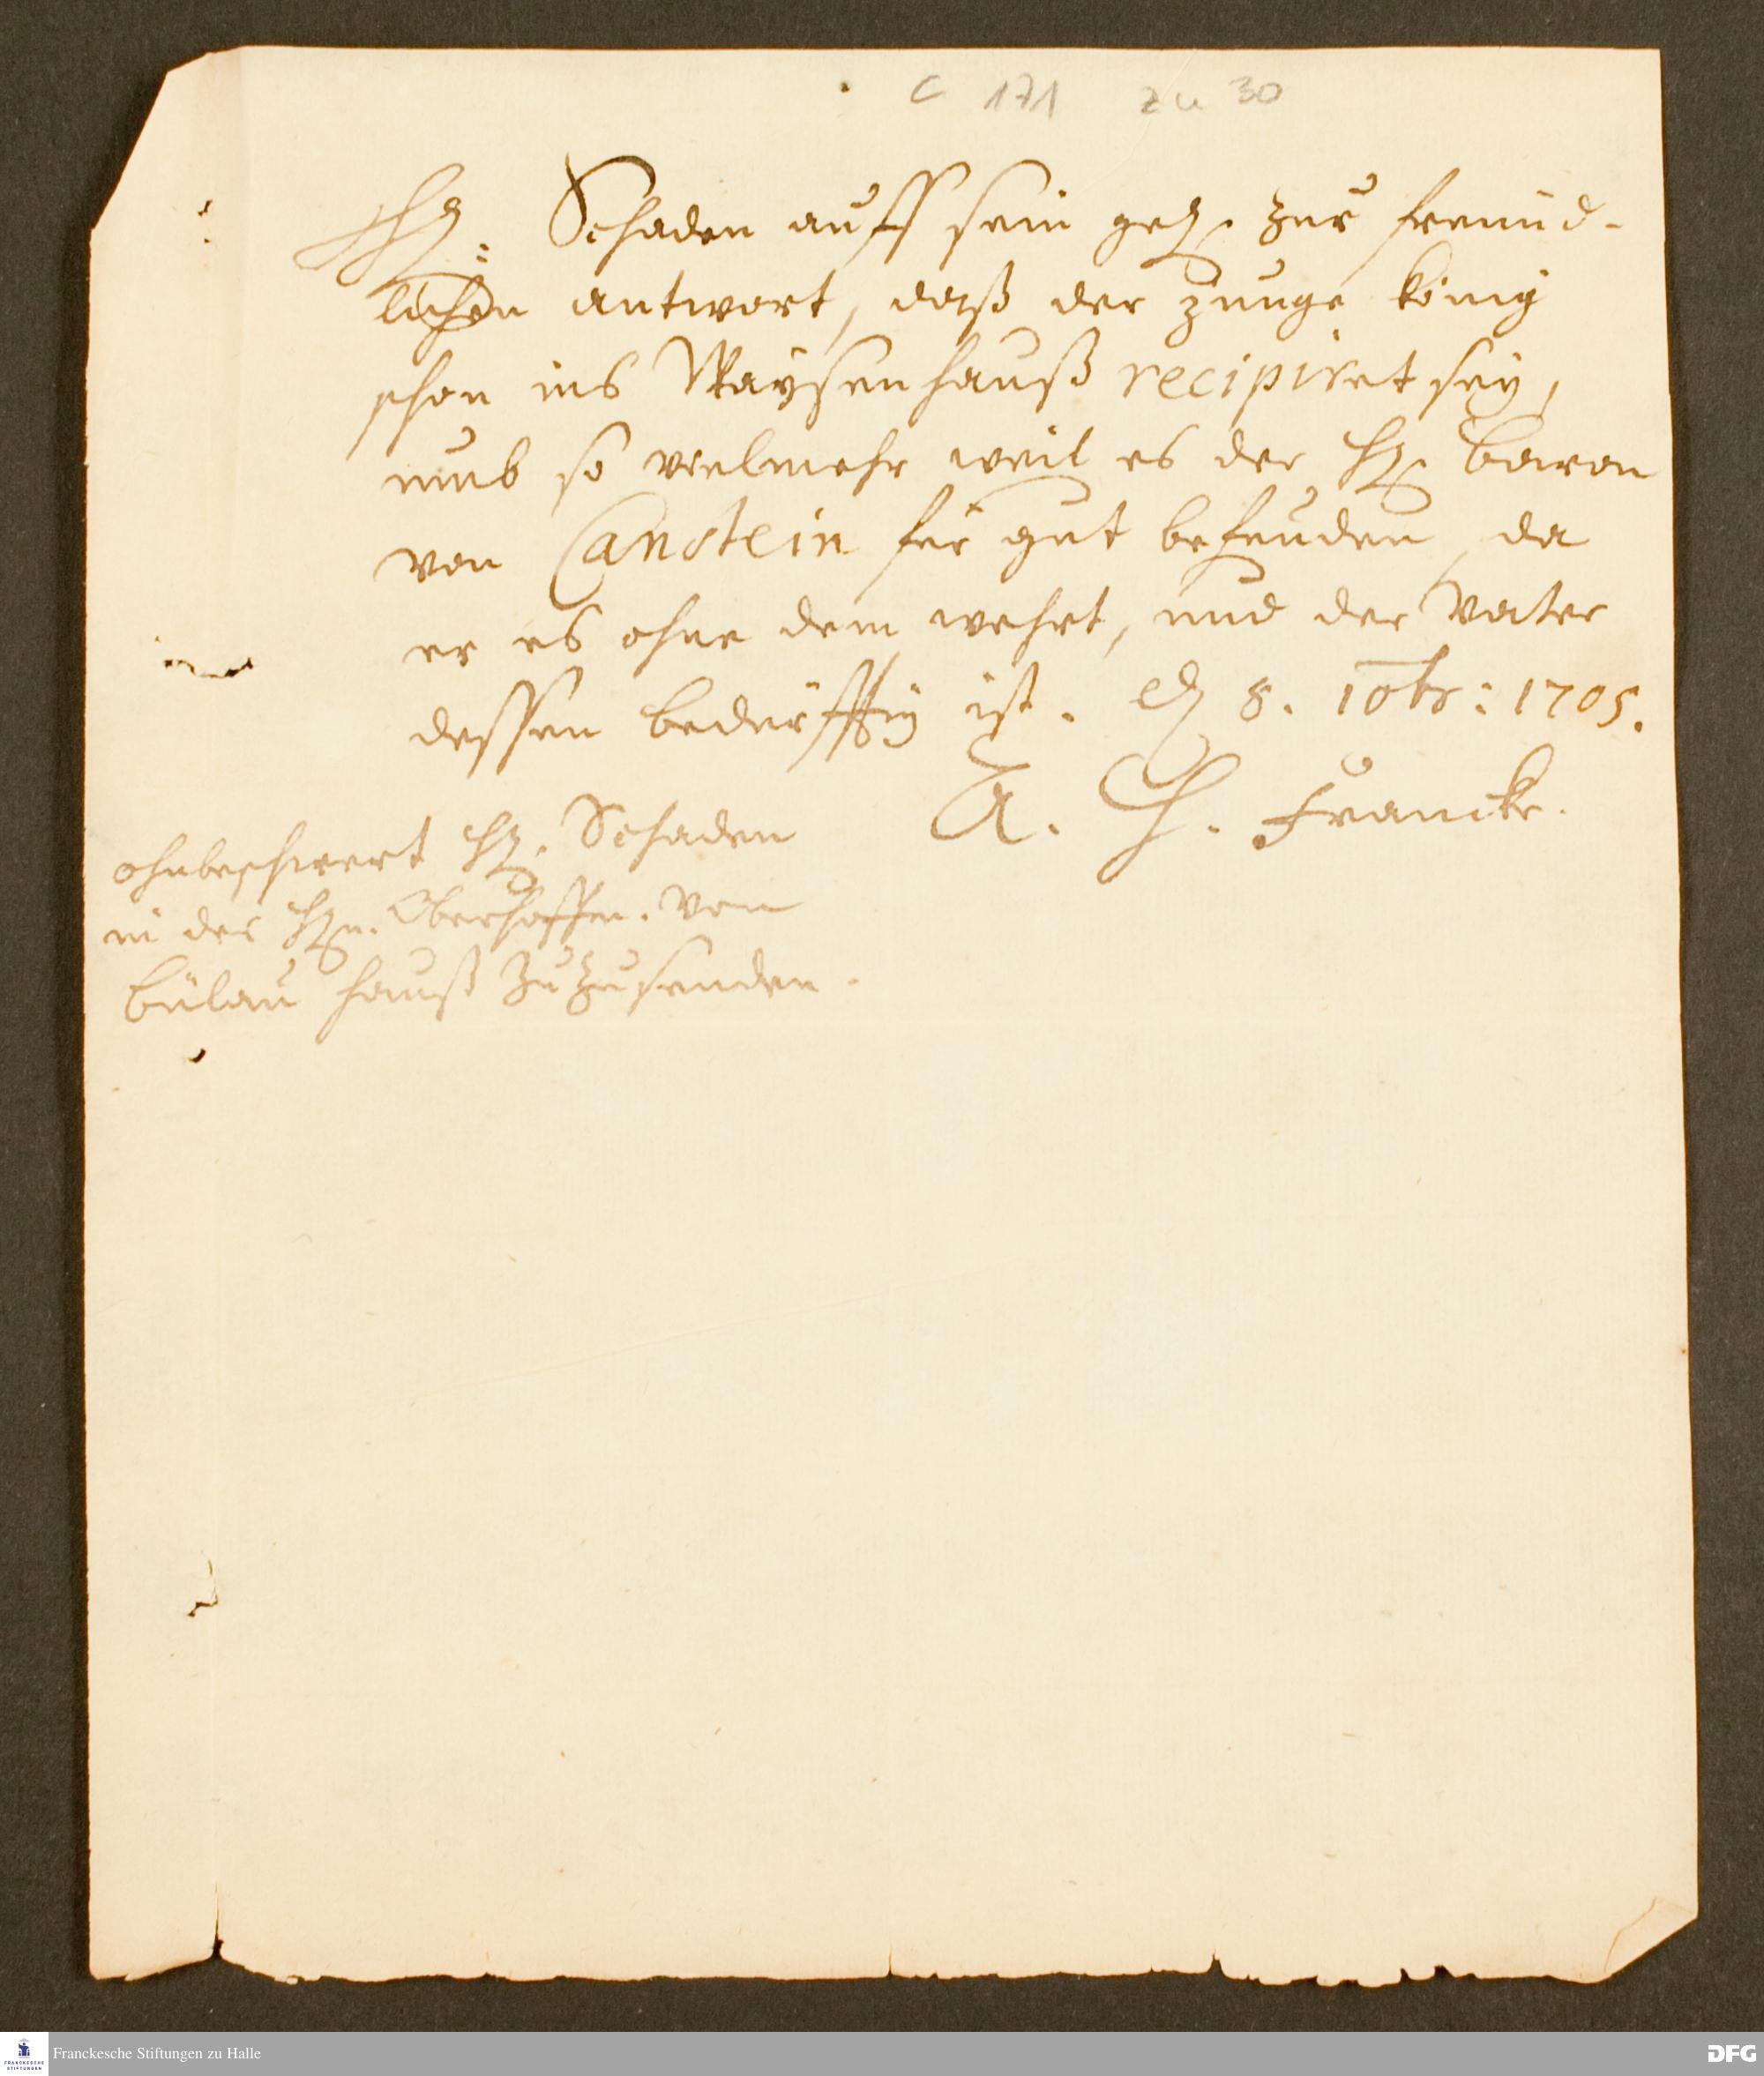 C 171 zu 30
H. Schaden auff sein geh. zur freund-
lichen antwort, daß der junge König
schon ins Waysenhauß recipiret sey,
umb so vielmehr weil es der H. Baron
von Canstein für gut befunden, da
er es ohne dem wehrt, und der Vater
dessen bedürfftig ist. d. 8. 10br: 1705.
A. H. Francke.
ohnbeschwert H. Schaden
in des Hn. Oberhoffm. von
Bülau hauß zuzusenden.
Franckesche Stiftungen zu Halle
FRANCKESCHE
STIFTUNGEN
DFG